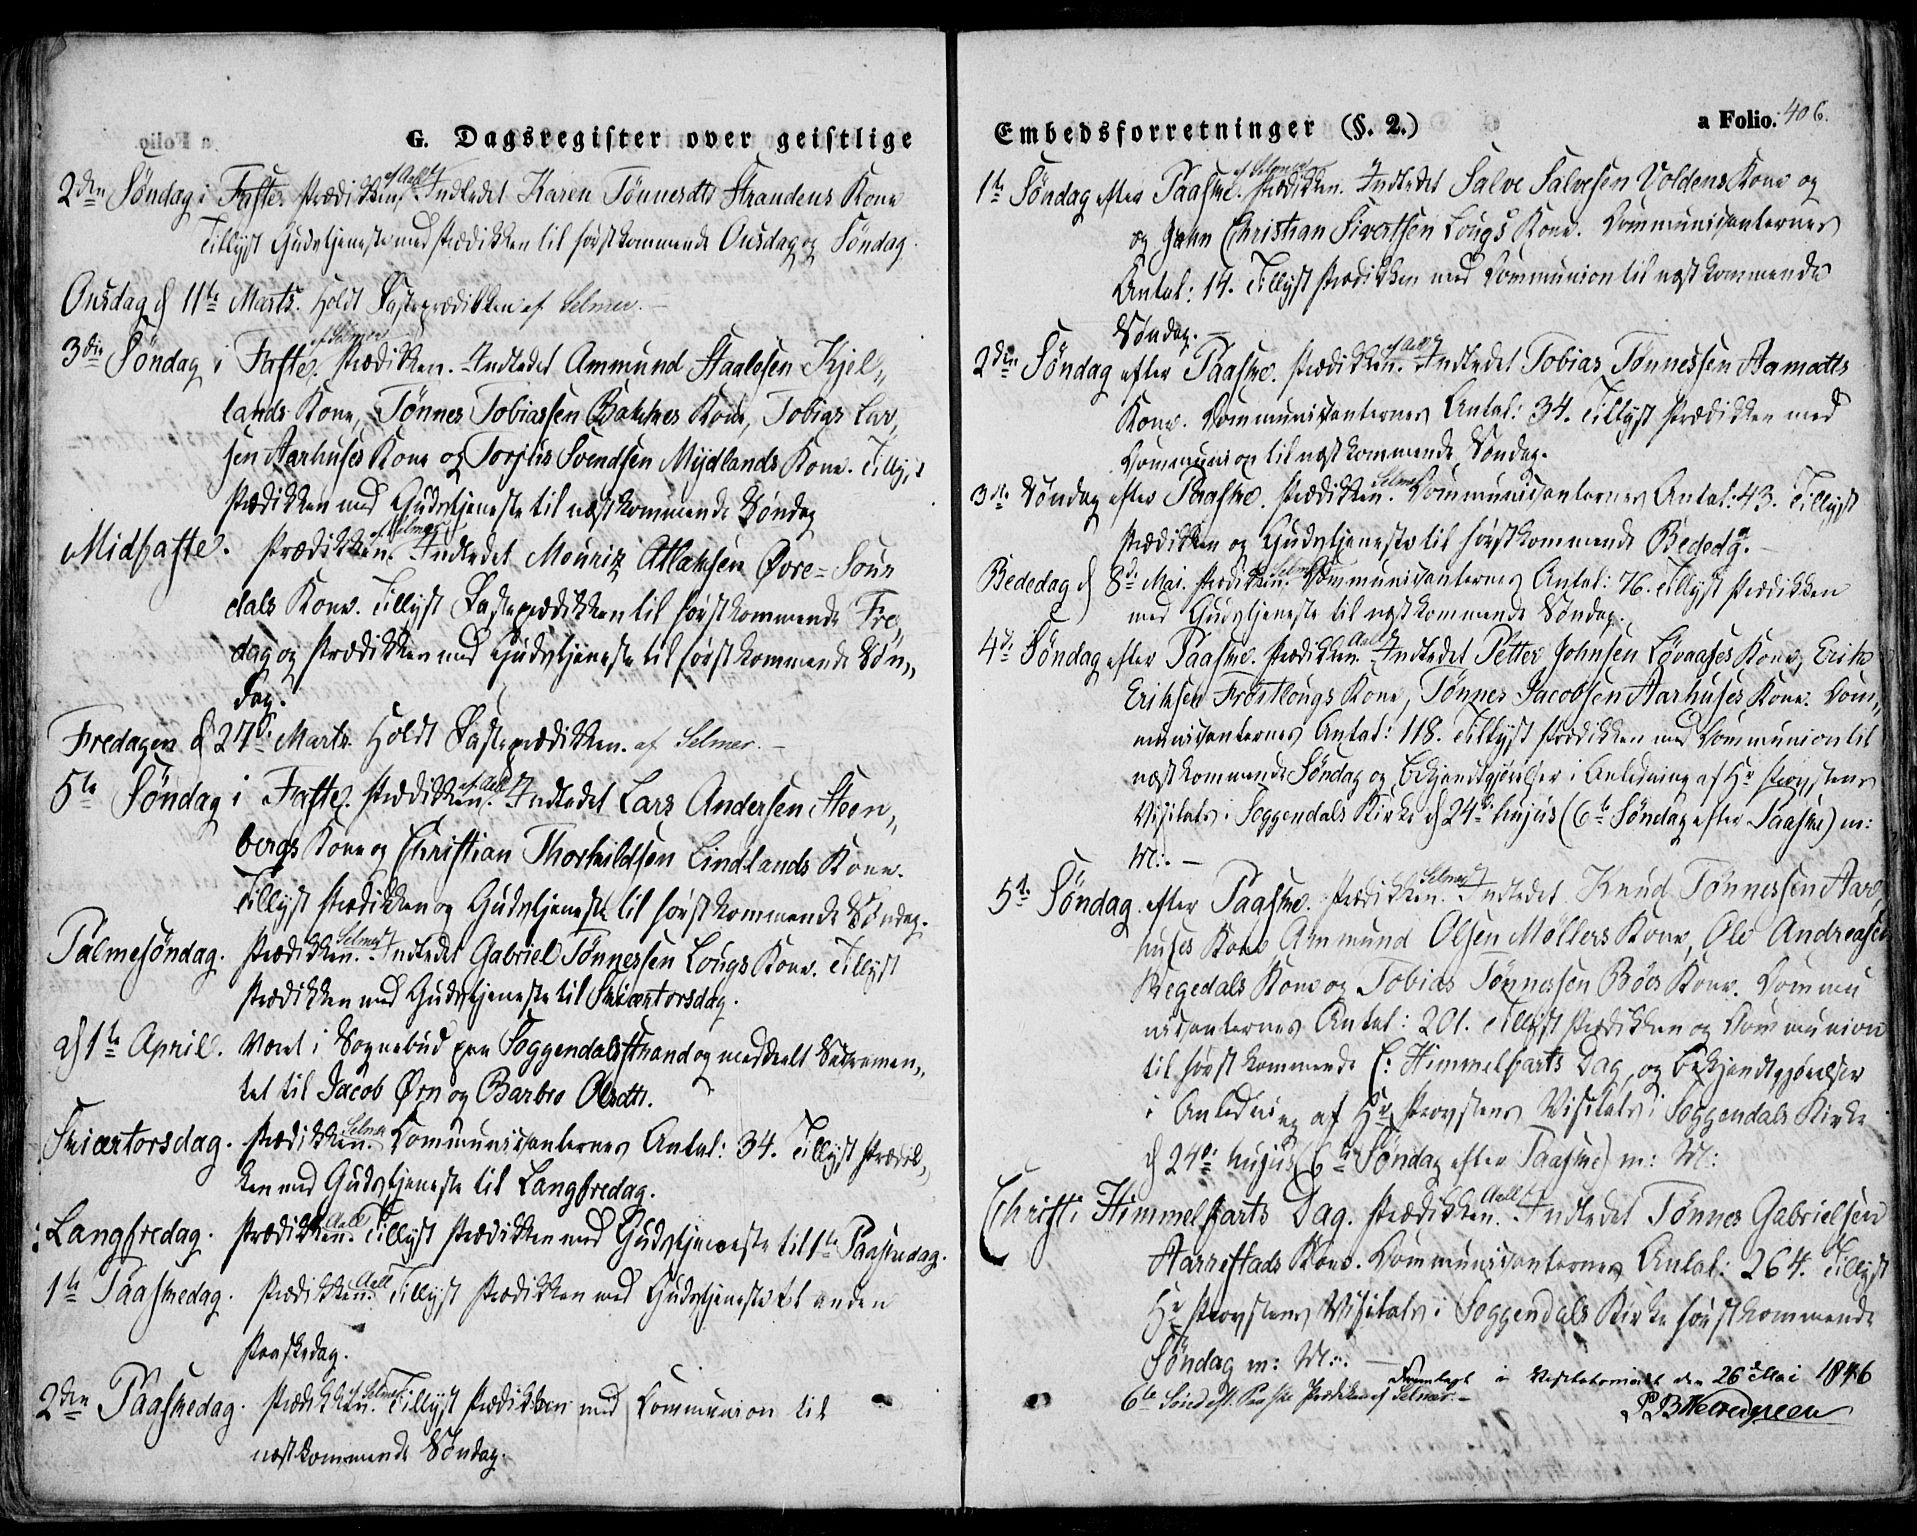 G. Dagsregister over geistlige
2den Søndag i Faste. Prædiken af Aall. Indledet Karen Tønnesdtr Strandens Kone
Tillyst Gudstjeneste med Prædikken til førstkommende Onsdag og Søndag.
Onsdag d 11te Marts. Holdt Fasteprædikken af Selmer.
3die Søndag i Faste. af Selmer Prædikken. Indledet Ammund Staalesen Kjel-
lands Kone, Tønnes Tobiassen Bakkes Kone, Tobias Lar-
sen Aarhuses Kone og Torjus Svendsen Mydlands Kone. Tillyst
Prædikken med Gudstjeneste til næstkommende Søndag
Midfaste. Prædikken af Selmer. Indledet Mouritz Atlaksen Øvre-Soun
dals Kone. Tillyst Fasteprædikken til førstkommende Fre-
dag og Prædikken med Gudstjeneste til førstkommende Søn-
dag.
Fredagen d 27de Marts. Holdt Fasteprædikken. af Selmer.
5te Søndag i Faste. Prædikken af Aall. Indledet Lars Andersen Steen-
bergs Kone og Christian Thorkildsen Lindlands Kone.
Tillyst Prædikken og Gudstjeneste til førstkommende Søndag.
Palmesøndag. Prædikken. Selmer Indledet Gabriel Tønnessen Lougs Kone. Tillyst
Prædikken med Gudstjeneste til Skiærtorsdag.
d 1te April. Været i Sognebud paa Soggendalsstrand og meddeelt Sacramen-
tet til Jacob Ørn og Barbro Olsdtr.
Skiærtorsdag. Prædikken. Selmer Communicanternes Antal: 34. Tillyst Prædik-
ken med Gudstjeneste til Langfredag.
Langfredag. Prædikken. Aall Tillyst Prædikken med Gudstjeneste til 1te Paaskedag.
1te Paaskedag. Prædikken. Aall Tillyst Prædikken med Gudstjeneste til anden
Paaskedag.
2den Paaskedag. Prædikken. af Selmer Tillyst Prædikken med Communion til
næstkommende Søndag.
Embedsforretninger (§. 2.)
a Folio. 406.
1te Søndag efter Paaske. af Selmer Prædikken. Indledet Salve Salvesen Voldens Kone og
og John Christian Sivertsen Lougs Kone. Communicanternes
Antal: 14. Tillyst Prædikken med Communion til næstkommende
Søndag.
2den Søndag efter Paaske. Prædikken. af Aall Indledet Tobias Tønnessen Aamodts
Kone. Communicanternes Antal: 34. Tillyst Prædikken med
Communion til næstkommende Søndag.
3die Søndag efter Paaske. Prædikken. Selmer Communicanternes Antal: 43. Tillyst
Prædikken og Gudstjeneste til førstkommende Bededag.
Bededag d 8de Mai. Prædikken. Selmer Communicanternes Antal: 76. Tillyst Prædikken
med Gudstjeneste til næstkommende Søndag.
4de Søndag efter Paaske. Prædikken. Aall Indledet Petter Johnsen Løvaases Kone, Erik
Eriksen Frøstlougs Kone, Tønnes Jacobsen Aarhuses Kone. Com-
municanternes Antal: 118. Tillyst Prædikken med Communion til
næstkommende Søndag og Bekjendtgjørelser i Anledning af Hr Provstens
Visitats i Soggendals Kirke d 24de hujus (6te Søndag efter Paaske) m:
M:
5te Søndag efter Paaske. Prædikken. Selmer Indledet Knud Tønnessen Aar-
huses Kone Ammund Olsen Møllers Kone, Ole Andreasen
Regedals Kone og Tobias Tønnessen Bøes Kone. Commu
nicanternes Antal: 201. Tillyst Prædikken og Communion
til førstkommende C: Himmelfarts Dag, og Bekjendtgjørelser
i Anledning af Hr Provstens Visitats i Soggendals Kirke
d 24de hujus (6te Søndag efter Paaske) m: M:
Christi Himmelfarts Dag. Prædikken. Aall Indledet Tønnes Gabrielsen
Aarrestads Kone. Communicanternes Antal: 264. Tillyst
Hr Provstens Visitats i Soggendals Kirke førstkommende
Søndag m: M:
6te Sønd. eft. Paaske Prædiken af Selmer.
Fremlagt i Visitatsmødet den 26 Mai 1846